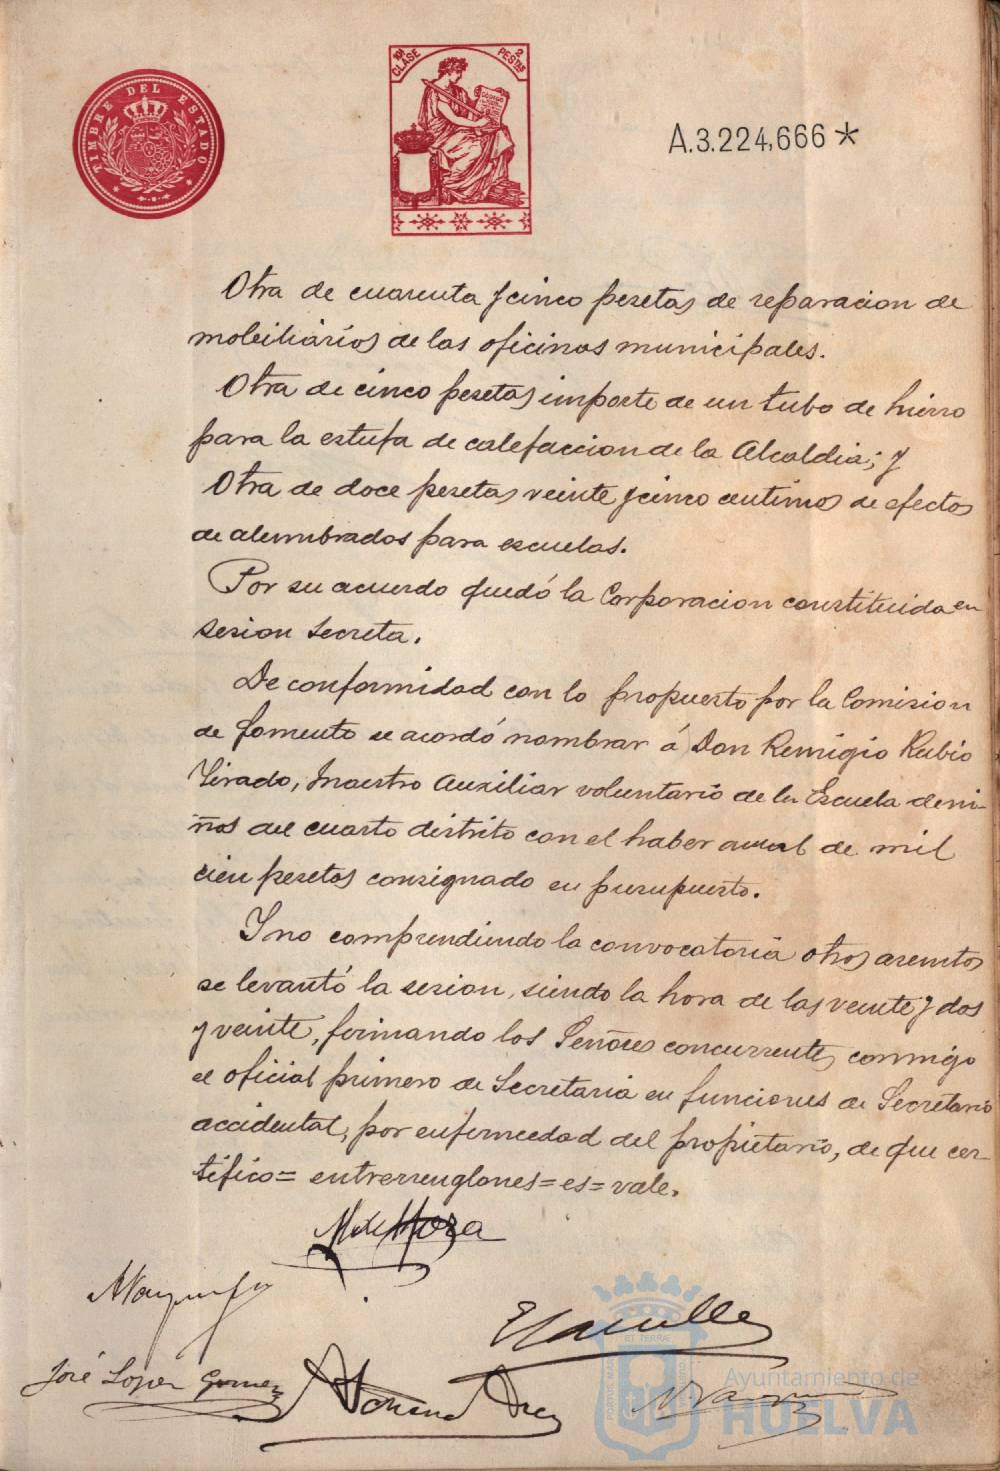 TIMBRE DEL ESTADO
10ª CLASE
2 PESTAS
A.3.224,666 *
Otra de cuarenta y cinco pesetas de reparacion de
mobiliarios de las oficinas municipales.
Otra de cinco pesetas importe de un tubo de hierro
para la estufa de calefaccion de la Alcaldia; y
Otra de doce pesetas veinte y cinco centimos de efectos
de alumbrados para escuelas.
Por su acuerdo quedó la Corporacion constituida en
sesion secreta.
De conformidad con lo propuesto por la Comision
de fomento se acordó nombrar á Don Remigio Rubio
Tirado, Maestro Auxiliar voluntario de la Escuela de ni-
ños del cuarto distrito con el haber anual de mil
cien pesetas consignado en presupuesto.
Y no comprendiendo la convocatoria otros asuntos
se levantó la sesion, siendo la hora de las veinte y dos
y veinte, firmando los Señores concurrentes, conmigo
el oficial primero de Secretaria en funciones de Secretario
accidental, por enfermedad del propietario, de que cer-
tifico= entrerrenglones=es=vale.
M. de Mora
José Lopez Gomez
PORTUS MARIS ET TERRAE CUSTODIA
Ayuntamiento de
HUELVA